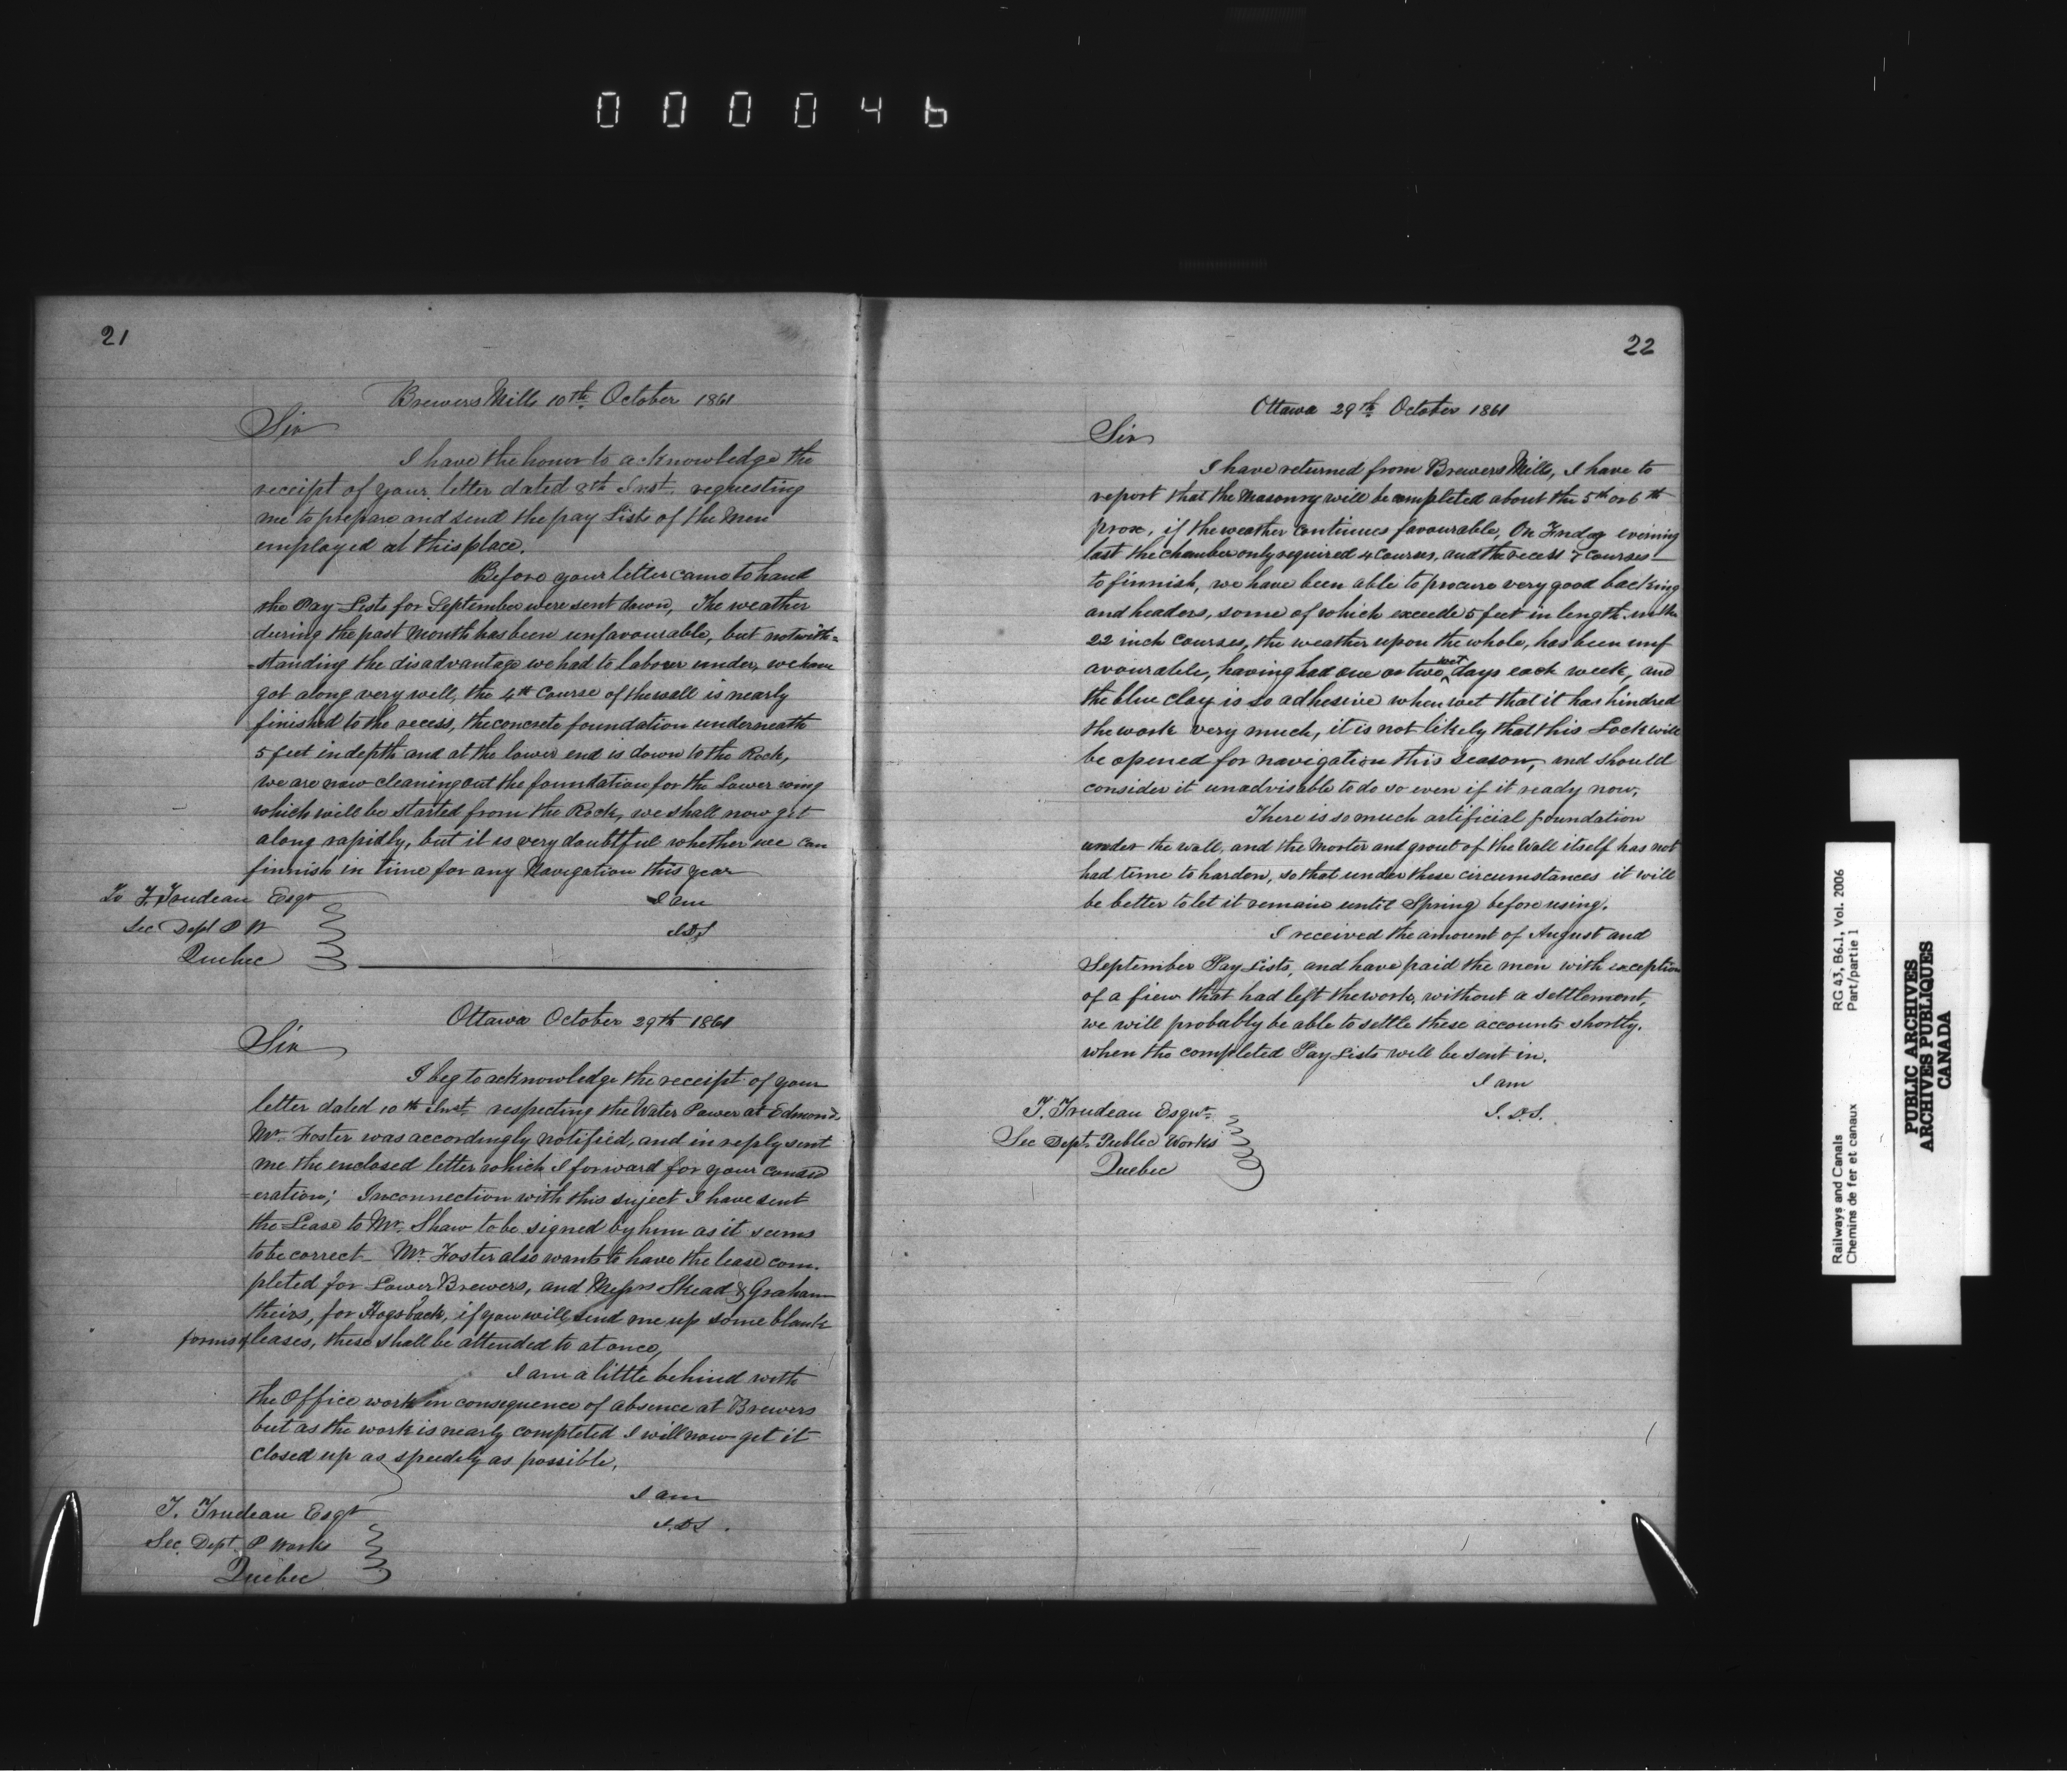 000046
21
Brewers Mills 10th October 1861
Sir
I have the honor to acknowledge the
receipt of your letter dated 8th Inst. requesting
me to prepare and send the pay Lists of the Men
employed at this place.
Before your letter came to hand
the Pay Lists for September were sent down, The weather
during the past Month has been unfavourable, but notwith=
=standing the disadvantage we had to labour under, we have
got along very well, the 4th Course of the wall is nearly
finished to the recess, the concrete foundation underneath
5 feet in depth and at the lower end is down to the Rock,
we are now cleaning out the foundation for the Lower wing
which will be started from the Rock, we shall now get
along rapidly, but it is very doubtful whether we can
finnish in time for any Navigation this year
To F. Trudeau Esqr
I am
Sec Dept P W
Quebec
Ottawa October 29th 1861
Sir
I beg to acknowledge the receipt of your
letter dated 10th Inst. respecting the Water Power at Edmonds.
Mr. Foster was accordingly notified, and in reply sent
me the enclosed letter which I forward for your consid
=eration; In connection with this suject I have sent
the Lease to Mr. Shaw to be signed by him as it seems
to be correct - Mr. Foster also wants to have the lease com.
pleted for Lower Brewers, and Messrs Skead & Graham
theirs, for Hogsback, if you will send me up some blank
forms of leases, these shall be attended to at once,
I am a little behind with
the Office work in consequence of absence at Brewers
but as the work is nearly completed I will now get it
closed up as speedily as possible,
I am
J.D.S.
T. Trudeau Esqr
Sec. Dept. P Works
Quebec
22
Ottawa 29th October 1861
Sir
I have returned from Brewers Mills, I have to
report that the Masonry will be completed about the 5th or 6th
prox, if the weather continues favourable, On Friday evening
last the chamber only required 4 Courses, and the recess 7 Courses
to finnish, we have been able to procure very good backing
and headers, some of which exceede 5 feet in length in the
22 inch Courses, the weather upon the whole, has been unf
avourable, having had one or two wet days each week, and
the blue clay is so adhesive when wet that it has hindred
the work very much, it is not likely that this Lock will
be opened for navigation this season, and should
consider it unadvisable to do so even if it ready now,
There is so much artificial foundation
under the wall, and the Morter and grout of the Wall itself has not
had time to harden, so that under these circumstances it will
be better to let it remain until Spring before using.
I received the amount of August and
September Pay Lists, and have paid the men with exception
of a fiew that had left the work, without a settlement,
we will probably be able to settle these accounts shortly.
when the completed Pay Lists will be sent in.
I am
J.D.S.
T. Trudeau Esqr.
Sec Dept. Public Works
Quebec
Railways and Canals
Chemins de fer et canaux
RG 43, B6.1, Vol. 2006
Part/partie 1
PUBLIC ARCHIVES
ARCHIVES PUBLIQUES
CANADA